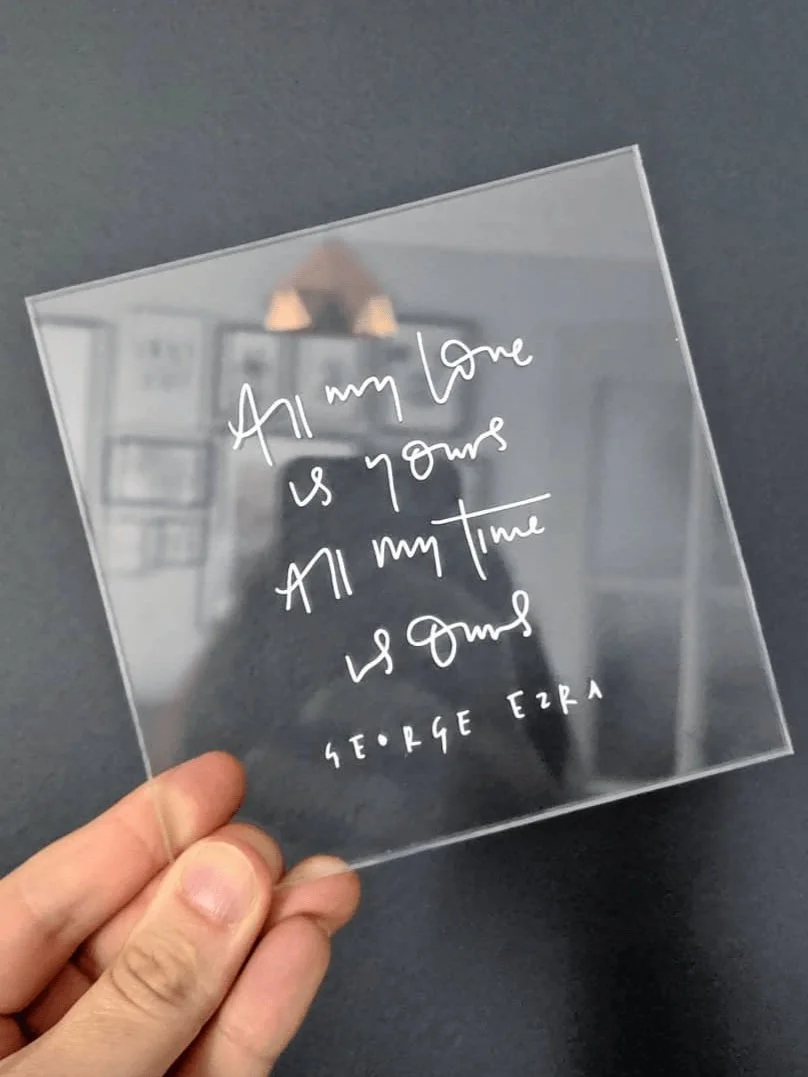 All my love
is yours
All my time
is ours
GEORGE EZRA